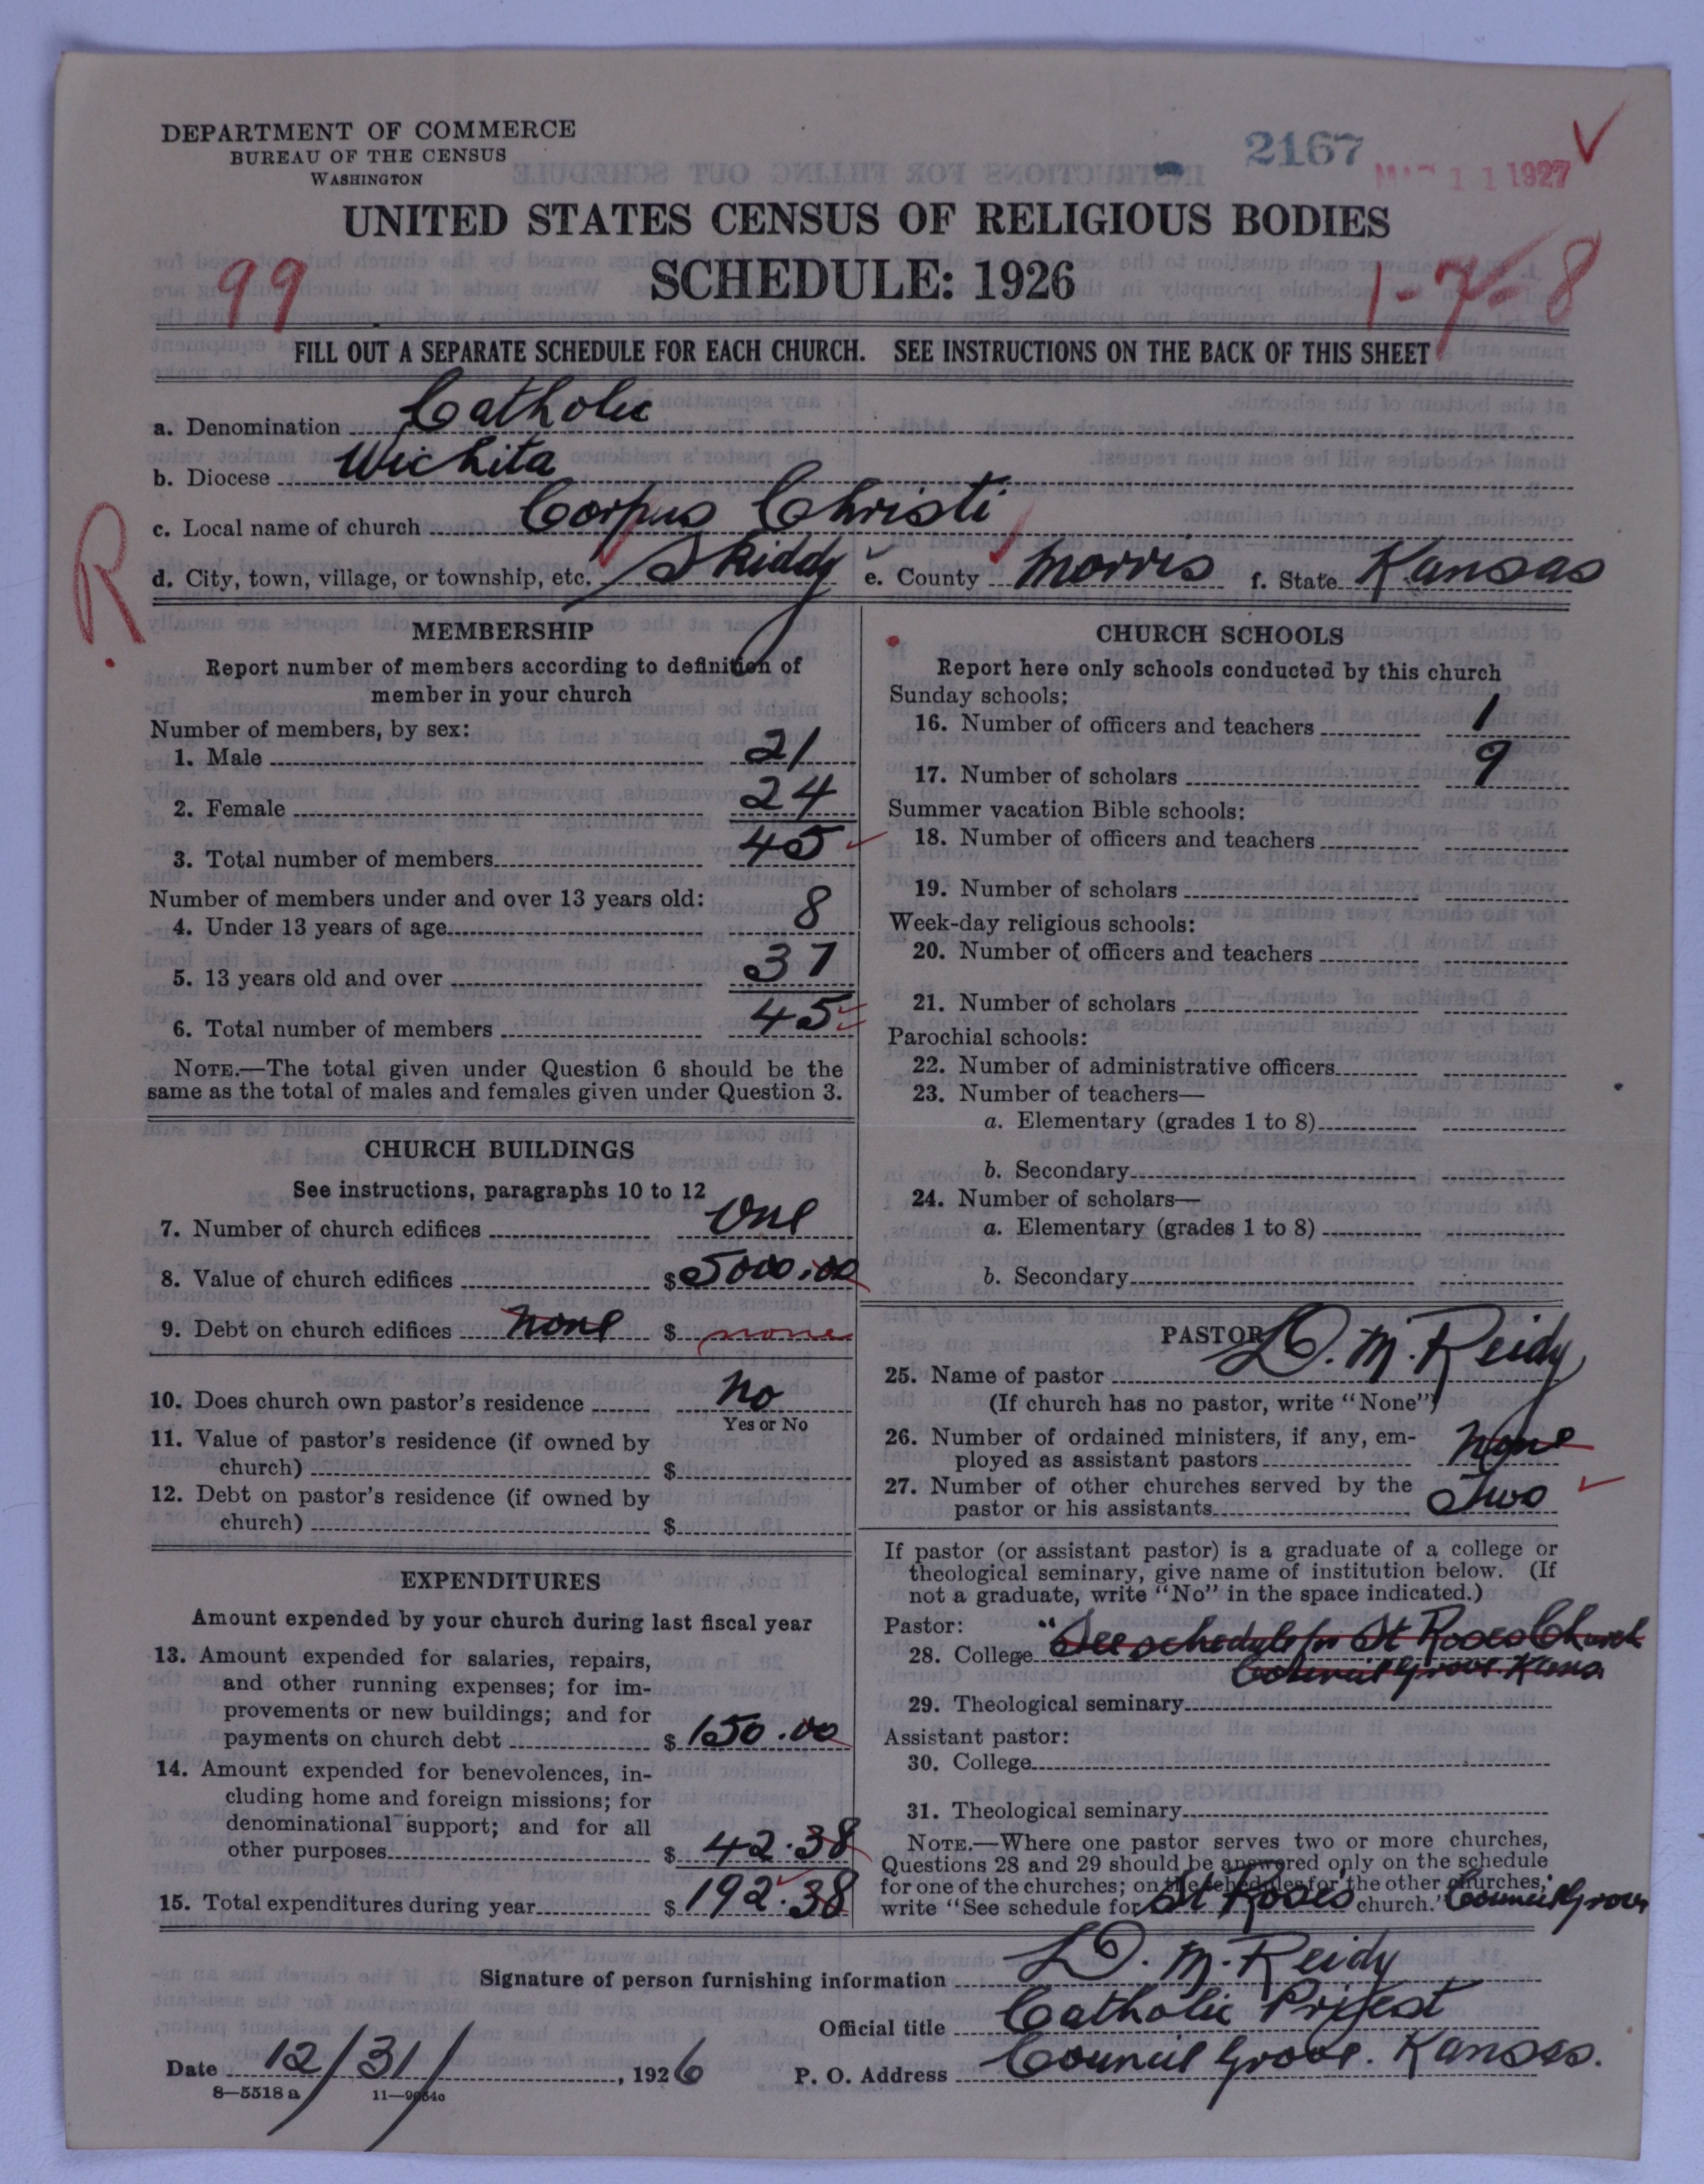 DEPARTMENT OF COMMERCE
BUREAU OF THE CENSUS
WASHINGTON
2167
11 1927
UNITED STATES CENSUS OF RELIGIOUS BODIES
SCHEDULE: 1926
99
1-7-8
FILL OUT A SEPARATE SCHEDULE FOR EACH CHURCH. SEE INSTRUCTIONS ON THE BACK OF THIS SHEET
a. Denomination Catholic
b. Diocese Wichita
c. Local name of church Corpus Christi
R
d. City, town, village, or township, etc. Skiddy e. County Morris f. State Kansas
MEMBERSHIP
Report number of members according to definition of
member in your church
Number of members, by sex:
1. Male 21
2. Female 24
3. Total number of members 45
Number of members under and over 13 years old:
4. Under 13 years of age 8
5. 13 years old and over 37
6. Total number of members 45
NOTE.—The total given under Question 6 should be the
same as the total of males and females given under Question 3.
CHURCH BUILDINGS
See instructions, paragraphs 10 to 12
7. Number of church edifices One
8. Value of church edifices $ 5000.00
9. Debt on church edifices none $ none
10. Does church own pastor's residence No
Yes or No
11. Value of pastor's residence (if owned by
church) $
12. Debt on pastor's residence (if owned by
church) $
EXPENDITURES
Amount expended by your church during last fiscal year
13. Amount expended for salaries, repairs,
and other running expenses; for im-
provements or new buildings; and for
payments on church debt $ 150.00
14. Amount expended for benevolences, in-
cluding home and foreign missions; for
denominational support; and for all
other purposes $ 42.38
15. Total expenditures during year $ 192.38
CHURCH SCHOOLS
Report here only schools conducted by this church
Sunday schools:
16. Number of officers and teachers 1
17. Number of scholars 9
Summer vacation Bible schools:
18. Number of officers and teachers
19. Number of scholars
Week-day religious schools:
20. Number of officers and teachers
21. Number of scholars
Parochial schools:
22. Number of administrative officers
23. Number of teachers—
a. Elementary (grades 1 to 8)
b. Secondary
24. Number of scholars—
a. Elementary (grades 1 to 8)
b. Secondary
PASTOR
25. Name of pastor D. M. Reidy
(If church has no pastor, write "None")
26. Number of ordained ministers, if any, em-
ployed as assistant pastors None
27. Number of other churches served by the
pastor or his assistants Two
If pastor (or assistant pastor) is a graduate of a college or
theological seminary, give name of institution below. (If
not a graduate, write "No" in the space indicated.)
Pastor:
28. College "See schedule for St Roses Church
Council Grove Kansas
29. Theological seminary
Assistant pastor:
30. College
31. Theological seminary
NOTE.—Where one pastor serves two or more churches,
Questions 28 and 29 should be answered only on the schedule
for one of the churches; on the schedules for the other churches,
write "See schedule for St Roses church." Council Grove
Signature of person furnishing information D. M. Reidy
Official title Catholic Priest
Date 12/31/, 1926 P. O. Address Council Grove. Kansas.
8—5518 a